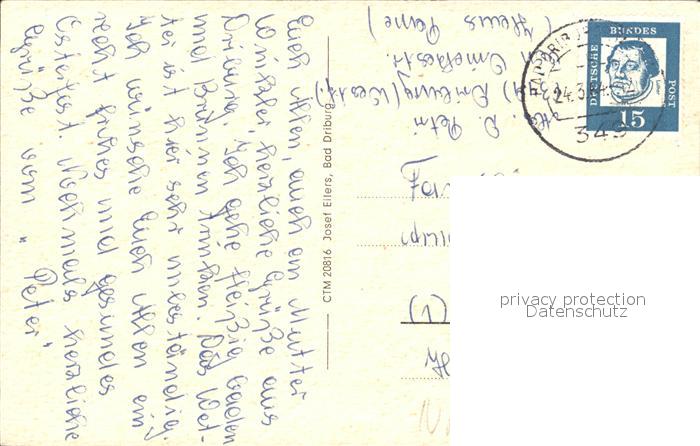 Euch Allen, auch an Mutter
Winkler, herzliche Grüße aus
Driburg. Ich gehe fleißig baden
und Brunnen trinken. Das Wet-
ter ist hier sehr unbeständig.
Ich wünsche Euch Allen ein
recht frohes und gesundes
Osterfest. Nochmals herzliche
Grüße vom "Peter"
CTM 20816 Josef Eilers, Bad Driburg
Abs. P. Petri
Driburg (Westf.)
(Haus
DEUTSCHE BUNDESPOST
15
BAD DRIBURG
24.3.64
349
(1)
privacy protection
Datenschutz